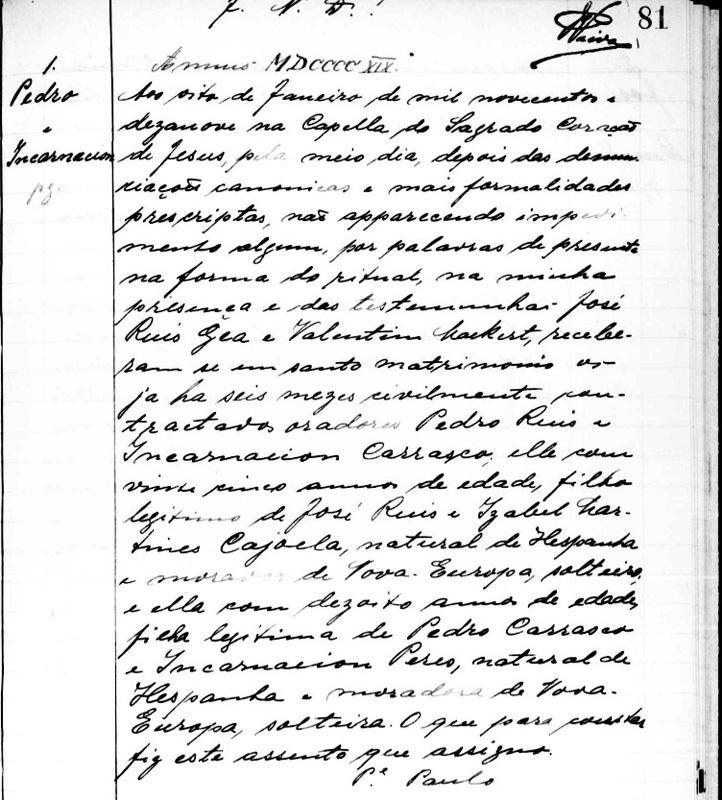 J. N. D.!
Paiva
81
Annus MDCCCCXIX.
1.
Pedro
e
Incarnacion
pg.
Aos oito de Janeiro de mil novecentos e
dezanove na Capella do Sagrado Coração
de Jesus, pela meio dia, depois das denun-
ciações canonicas e mais formalidades
prescriptas, não apparecendo impedi-
mento algum, por palavras de presente
na forma do ritual, na minha
presença e das testemunhas José
Ruis Gea e Valentim, recebe-
ram se em santo matrimonio os
ja ha seis mezes civilmente con-
tractados oradores Pedro Ruis e
Incarnacion Carrasco, elle com
vinte cinco annos de edade, filho
legitimo de José Ruis e Izabel Mar-
tines Cajoela, natural de Hespanha
e morador de Nova-Europa, solteiro,
e ella com dezoito annos de edade,
filha legitima de Pedro Carrasco
e Incarnacion Peres, natural de
Hespanha e moradora de Nova-
Europa, solteira. O que para constar
fiz este assento que assigno.
Pe. Paulo